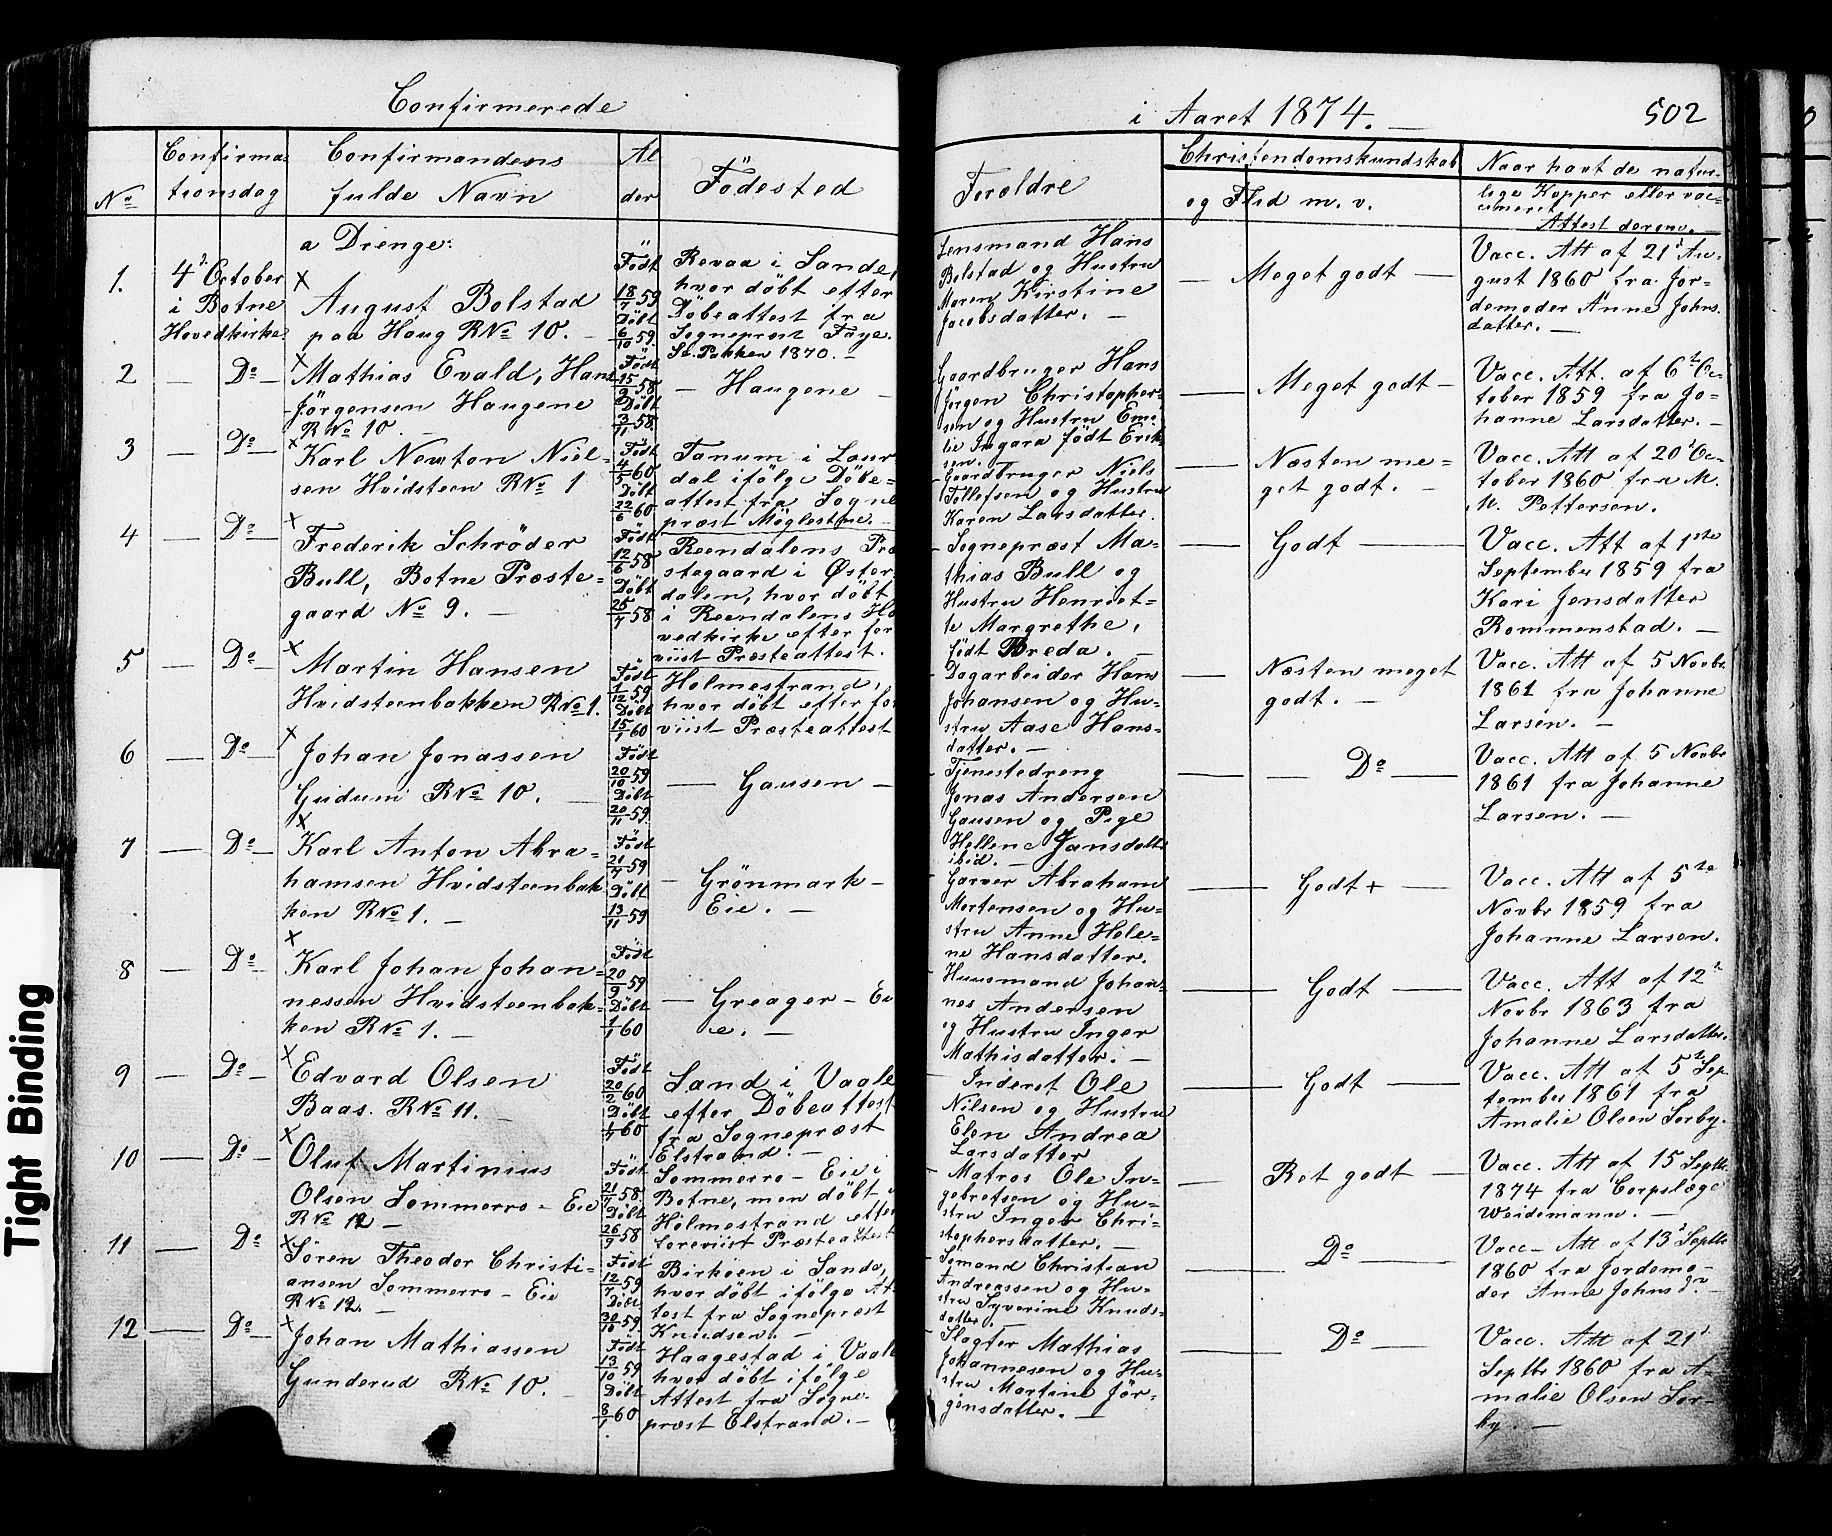 Confirmerede
i Aaret 1874.
502
No
Confirma-
tionsdag
Confirmandens
fulde Navn
Al
der
Födested
Foroldre
Christendomskundskab
og Flid m. v.
Naar havt de natur-
lige Kopper eller vac-
cineret
Attest derom.
a Drenge:
1.
4d October
i Botne
Hovedkirke
August Bolstad
paa Houg RNo 10.
Födt
18/7 59
Döbt
6/10 59.
Revaa i Sande,
hvor döbt efter
Döbeattest fra
Sogneprest Faye.
Sd. Pakken 1870.
Lensmand Hans
Bolstad og Hustru
Maren Kirstine
Jacobsdatter.
Meget godt
Vacc. Att af 21d Au-
gust 1860 fra Jor-
demoder Anne Johns
datter.
2
Do
Mathias Evald, Hans
Jörgensen Haugene
RNo 10
Födt
58.
Döbt
3/11 58.
Haugene
Gaardbruger Hans
Jörgen Christopher-
sen og Hustru Emi
lie Ingara födt Erik
sen.
Meget godt
Vacc. Att. af 6te Oc-
tober 1859 fra Jo-
hanne Larsdatter.
3
Do
Karl Newton Niel-
sen Hvidsteen RNo 1
Födt
4/5 60
Döbt
22/6 60
Tanum i Laur
dal ifölge Döbe-
attest fra Sogne
præst Möglestue.
Gaardbruger Niels
Tollefsen og Hustru
Karen Larsdatter.
Næsten me-
get godt.
Vacc. Att af 20d Oc-
tober 1860 fra M.
M. Pettersen.
4
Do
Frederik Schrøder
Bull, Botne Præste-
gaard No 9.
Födt
12/6 58
Döbt
25/7 58
Reendalens Præ
stegaard i Øster
dalen, hvor döbt
i Reendalens Ho
vedkirke efter for
viist Præsteattest.
Sognepræst Ma-
thias Bull og
Hustru Henriet-
te Margrethe,
födt Breda.
Godt
Vacc. Att af 1ste
September 1859 fra
Kari Jensdatter
Rommenstad.
5
Do
Martin Hansen
Hvidsteenbakken RNo 1.
Födt
1/12 59
Döbt
15/1 60
Holmestrand,
hvor döbt efter fo
viist Præsteattest
Dagarbeider Hans
Johansen og Hu-
stru Aase Hans-
datter.
Næsten meget
godt.
Vacc. Att af 5 Novbr
1861 fra Johanne
Larsen.
6
Do
Johan Jonassen
Gudum RNo 10.
Födt
20/10 59
Döbt
20/11 59.
Gausen
Tjenestedreng
Jonas Andersen
Gausen og Pige
Hellene Jansdatter
ibid.
Do
Vacc. Att af 5 Novbr
1861 fra Johanne
Larsen.
7
Do
Karl Anton Abra-
hamsen Hvidsteenbak
ken RNo 1.
Födt
21/7 59
Döbt
13/11 59
Grönmark
Eie.
Garver Abraham
Mortensen og Hu-
stru Anne Hele-
ne Hansdatter.
Godt +
Vacc. Att af 5te
Novbr 1859 fra
Johanne Larsen.
8
Do
Karl Johan Johan-
nessen Hvidsteenbak-
ken RNo 1.
Födt
20/9 59
Döbt
1/1 60
Greager - Ei
e.
Huusmand Johan-
nes Andersen
og Hustru Inger
Mathisdatter.
Godt
Vacc. Att af 12te
Novbr 1863 fra
Johanne Larsdatter.
9
Do
Edvard Olsen
Baas. RNo 11.
Födt
20/2 60
Döbt
60
Sand i Vaale
efter Döbeattest
fra Sognepræst
Elstrand.
Inderst Ole
Nilsen og Hustru
Elen Andrea
Larsdatter
Godt
Vacc. Att af 5te Sep
tember 1861 fra
Amalie Olsen Sørby.
10
Do
Oluf Martinius
Olsen Sommerro - Eie
RNo 12
Födt
21/7 58
Döbt
26/9 58
Sommerro - Eie i
Botne, men döbt i
Holmestrand efter
foreviist Præsteattest
Matros Ole In-
gebretsen og Hu-
stru Inger Chri-
stophersdatter.
Ret godt
Vacc. Att af 15 Septbr.
1874 fra Corpslæge
Weidemann.
11
Do
Sören Theodor Christi-
ansen Sommerro - Eie
RNo 12.
Födt
12/7 59
Döbt
30/10 59.
Birköen i Sande,
hvor döbt ifölge At
test fra Sognepræst
Knudsen.
Sömand Christian
Andreassen og Hu-
stru Syverine Knuds-
datter.
Do
Vacc. Att af 13d Septbr
1860 fra Jordemo-
der Anne Johnsd.
12
Do
Johan Mathiassen
Gunderud RNo 10.
Födt
13/10 59
Döbt
8/1 60
Haagestad i Vaale
hvor döbt ifölge
Attest fra Sogne-
præst Elstrand.
Slagter Mathias
Johannesen og Hu-
stru Martine Jör-
gensdatter.
Do
Vacc. Att af 21d
Septbr 1860 fra A-
malie Olsen Sör-
by.
Tight Binding